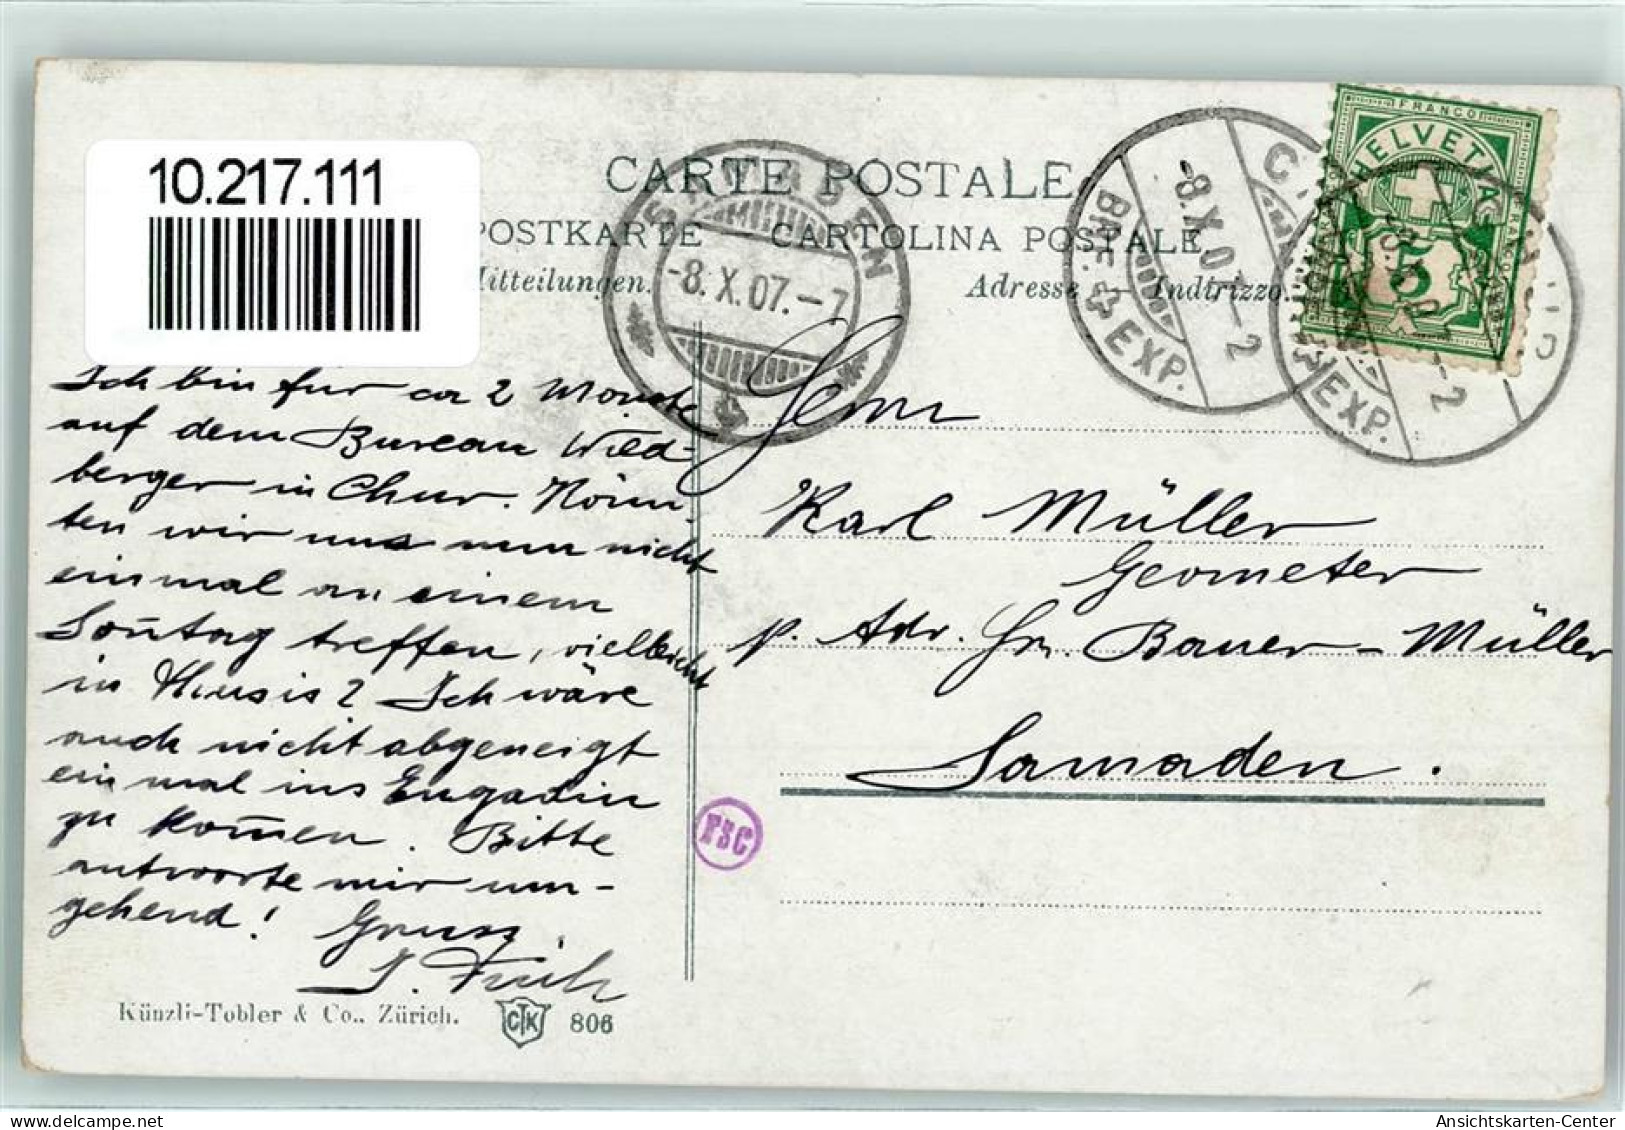 10.217.111
CARTE POSTALE
POSTKARTE CARTOLINA POSTALE
Mitteilungen. Adresse — Indirizzo.
SAMADEN
-8.X.07.-7
BRF. EXP.
-8.X.07-2
EXP.
FRANCO
HELVETIA
5
Ich bin für ca 2 Monate
auf dem Bureau Wild-
berger in Chur. Könn-
ten wir uns nun nicht
einmal an einem
Soñtag treffen, vielleicht
in Thusis? Ich wäre
auch nicht abgeneigt
einmal ins Engadin
zu kom̄en. Bitte
antworte mir um-
gehend! Gruss
Herrn
Karl Müller
Geometer
p. Adr. Hrn. Bauer-Müller
Samaden.
FBC
Künzli-Tobler & Co., Zürich.
CTK 806
Ansichtskarten-Center